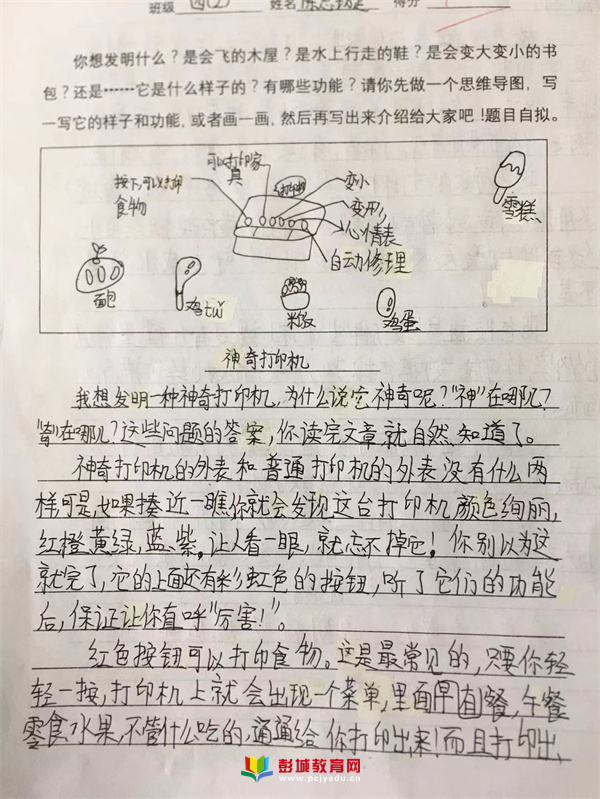 班级 四(2) 姓名 得分
你想发明什么？是会飞的木屋？是水上行走的鞋？是会变大变小的书
包？还是……它是什么样子的？有哪些功能？请你先做一个思维导图，写
一写它的样子和功能，或者画一画，然后再写出来介绍给大家吧！题目自拟。
可以打印家
具
按下，可以打印
食物
打印机
变小
变形
心情表
自动修理
雪糕
面包
鸡tuǐ
米饭
鸡蛋
神奇打印机
我想发明一种神奇打印机，为什么说它神奇呢？"神"在哪儿？
"奇"在哪儿？这些问题的答案，你读完文章就自然知道了。
神奇打印机的外表和普通打印机的外表没有什么两
样，可是，如果揍近一瞧，你就会发现这台打印机颜色绚丽，
红橙黄绿蓝紫。让人看一眼，就忘不掉它！你别以为这
就完了，它的上面还有彩虹色的按钮，听了它们的功能
后，保证让你直呼"厉害！"。
红色按钮可以打印食物。这是最常见的，只要你轻
轻一按，打印机上就会出现一个菜单，里面早餐，午餐
零食水果，不管什么吃的，通通给你打印出来！而且打印出
彭城教育网
www.pcjyedu.cn